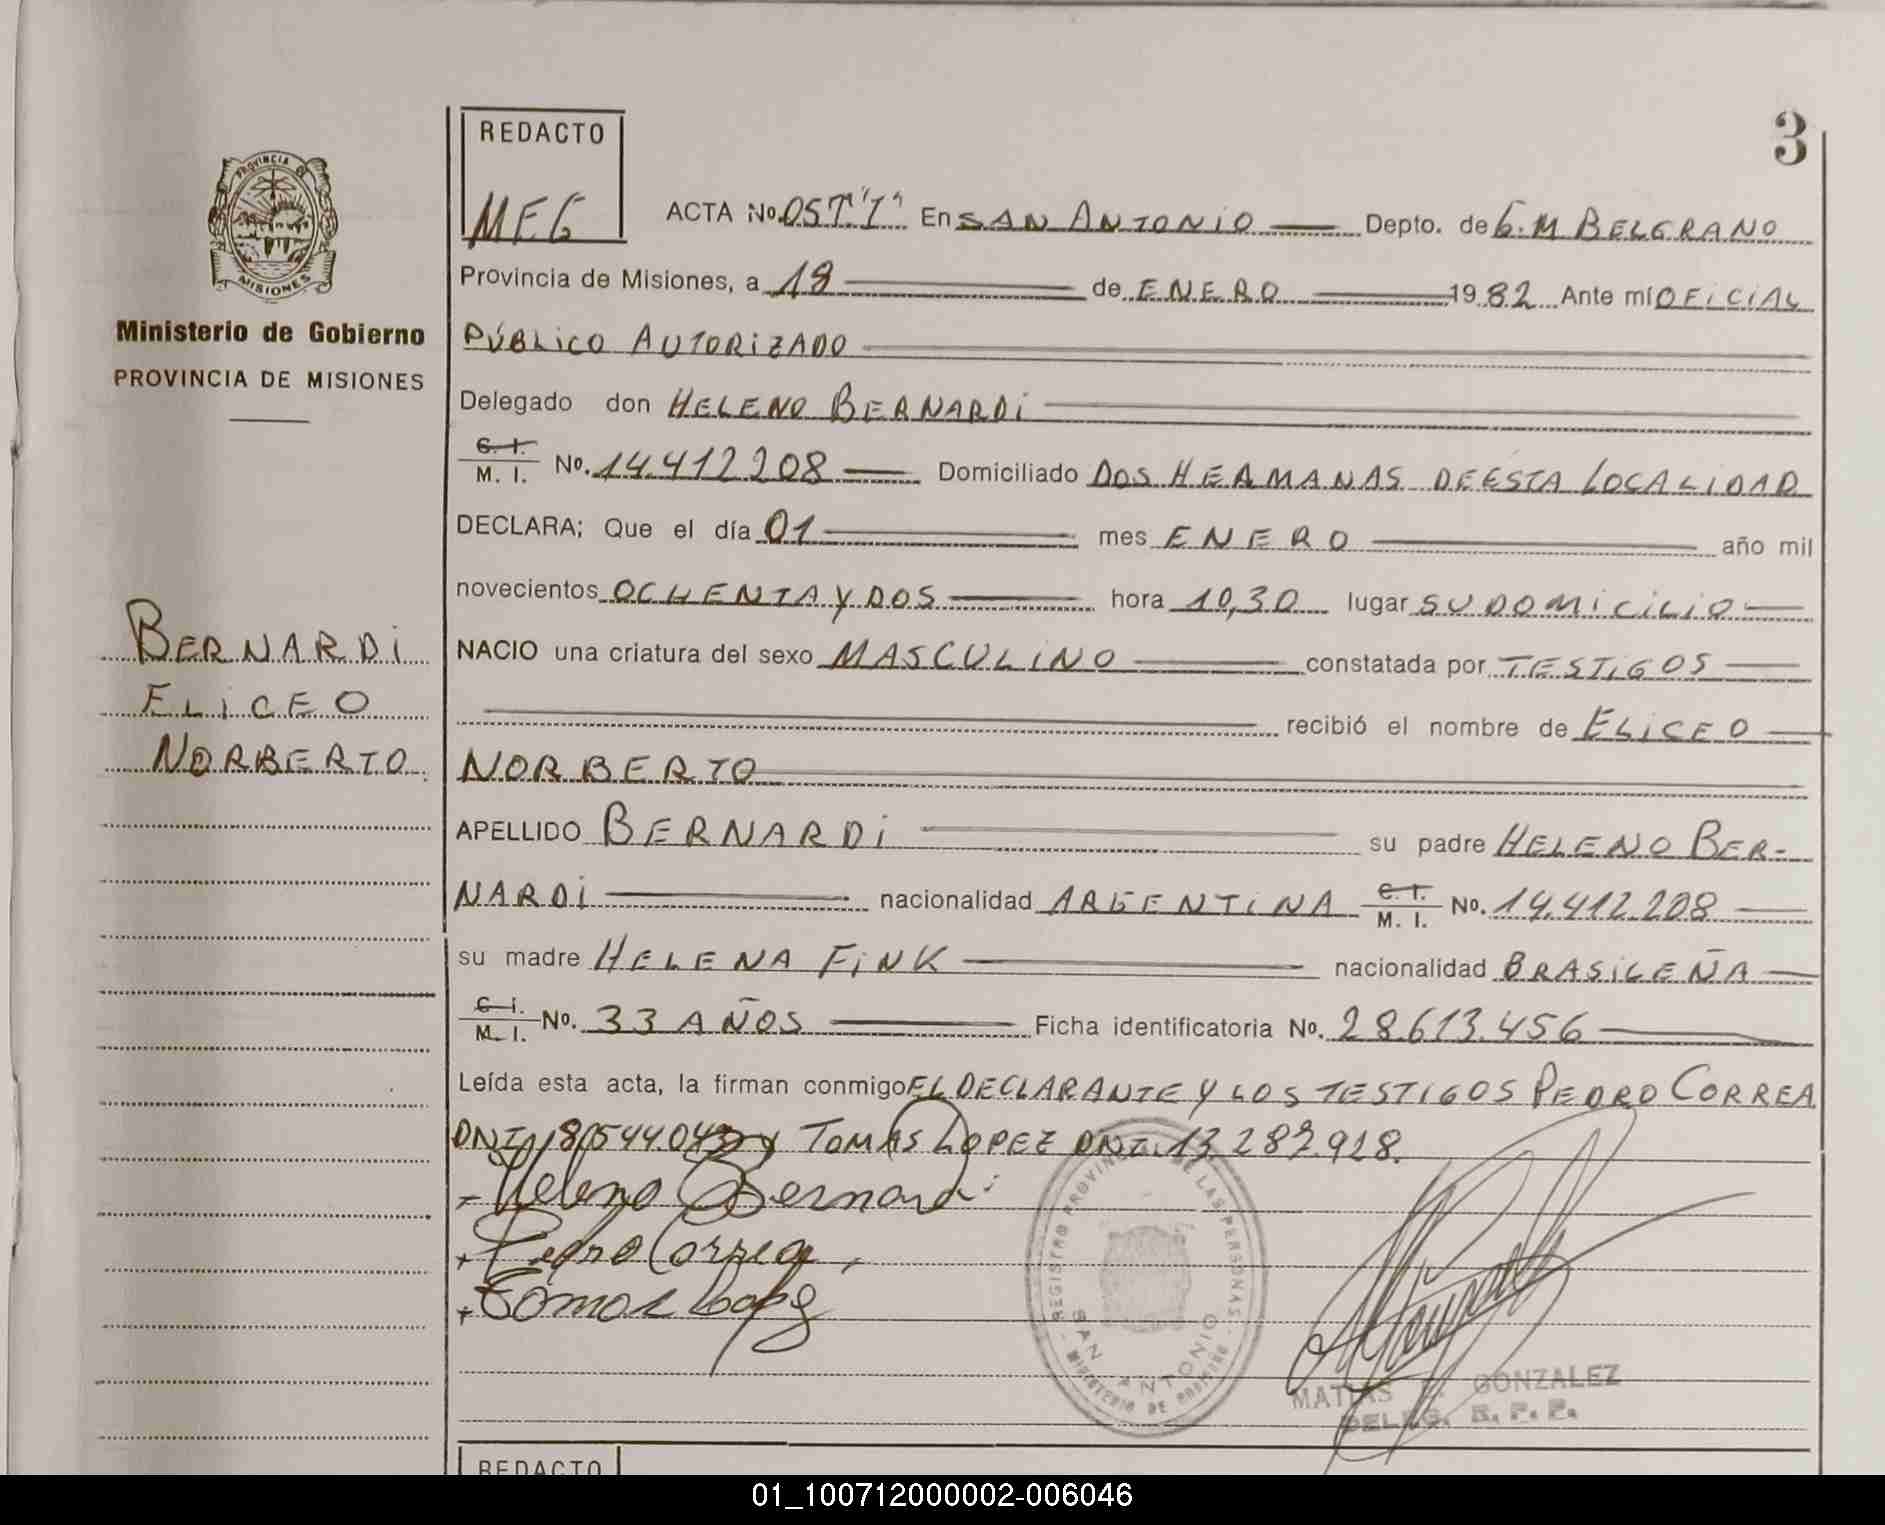 3
REDACTO
MEG
PROVINCIA DE
MISIONES
Ministerio de Gobierno
PROVINCIA DE MISIONES
ACTA No. 05 T."I" En SAN ANTONIO Depto. de G. M BELGRANO
Provincia de Misiones, a 18 de ENERO 1982 Ante mí OFICIAL
PÚBLICO AUTORIZADO
Delegado don HELENO BERNARDI
C. I. M. I. No. 14.412.208 Domiciliado DOS HERMANAS DE ESTA LOCALIDAD
DECLARA; Que el día 01 mes ENERO año mil
novecientos OCHENTA Y DOS hora 10,30 lugar SU DOMICILIO
NACIO una criatura del sexo MASCULINO constatada por TESTIGOS
recibió el nombre de ELICEO
NORBERTO
APELLIDO BERNARDI su padre HELENO BER-
NARDI nacionalidad ARGENTINA C. I. M. I. No. 14.412.208
su madre HELENA FINK nacionalidad BRASILEÑA
C. I. M. I. No. 33 AÑOS Ficha identificatoria No. 28.613.456
Leída esta acta, la firman conmigo EL DECLARANTE Y LOS TESTIGOS PEDRO CORREA
DNI y TOMAS LOPEZ DNI.
BERNARDI
ELICEO
NORBERTO
Heleno Bernardi
Pedro Correa
Tomas Lopez
REGISTRO PROVINCIAL DE LAS PERSONAS
SAN ANTONIO
MINISTERIO DE GOBIERNO
MATIAS GONZALEZ
DELEG. R. P. P.
REDACTO
01_100712000002-006046